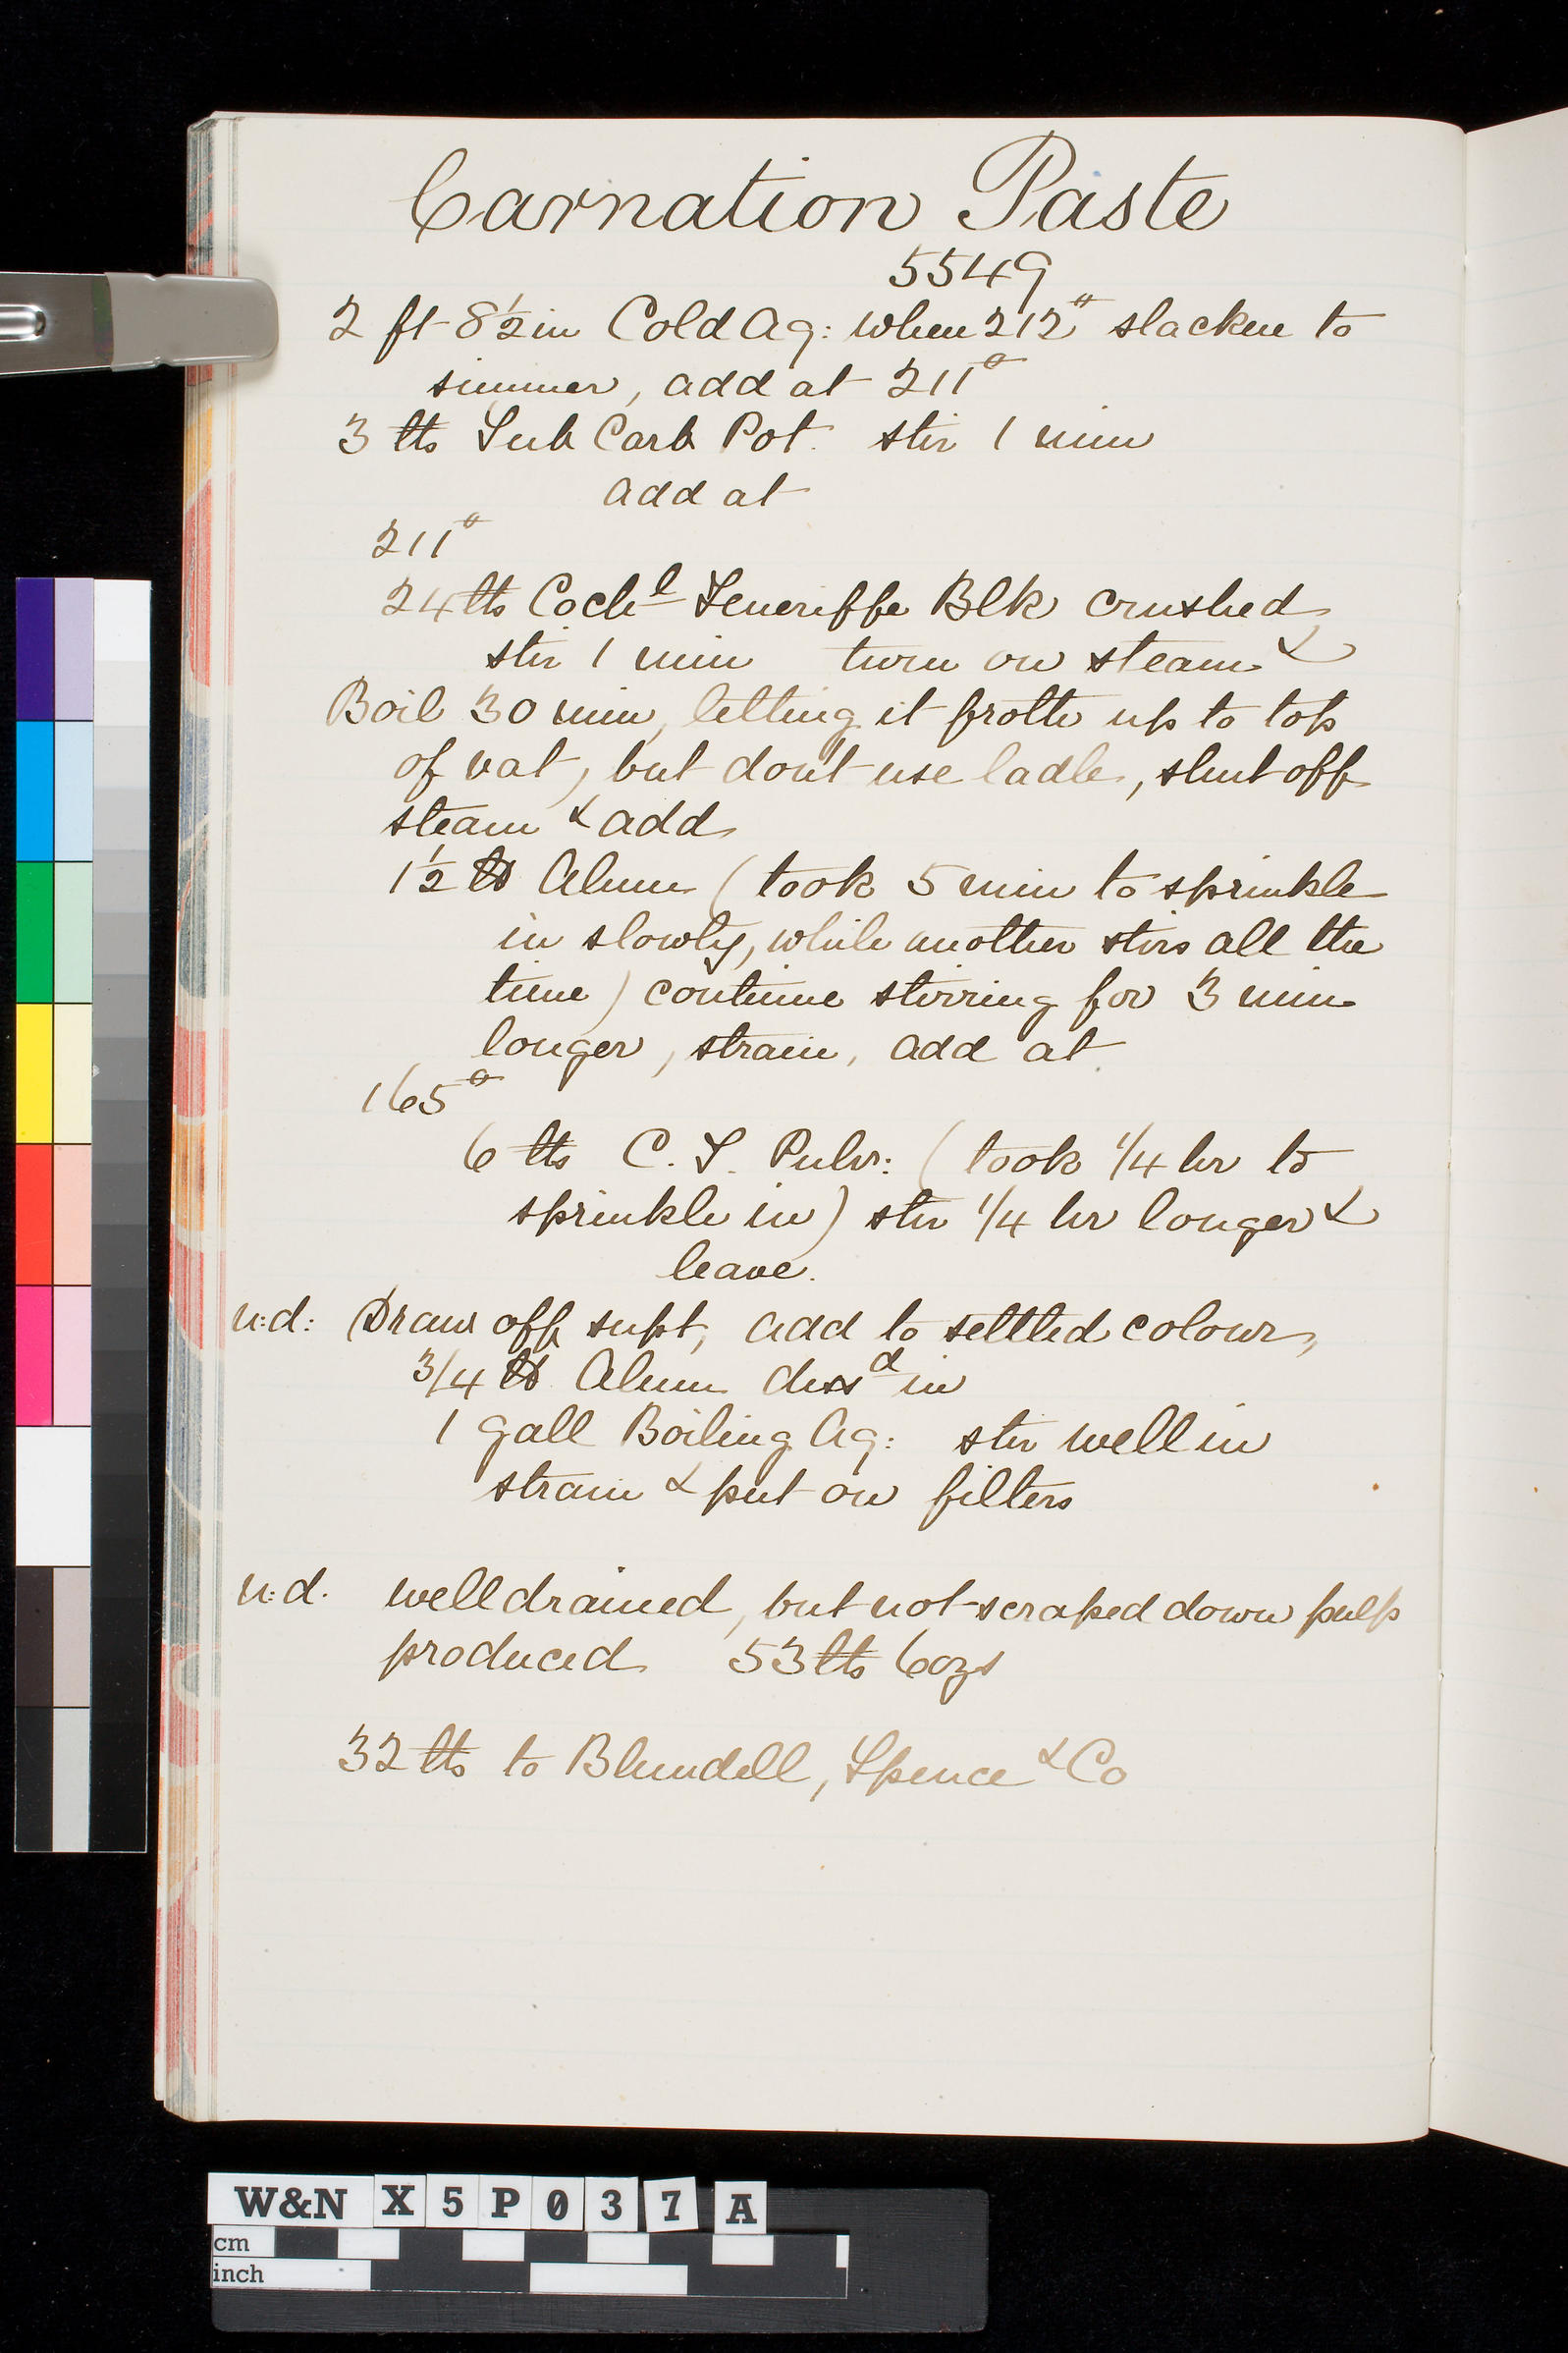 Carnation Paste
5549
2 ft 8½ in Cold Aq: when 212° slacken to
simmer, add at 211°
3 lbs Sub Carb Pot. stir 1 min
add at
211°
24 lbs Cochl Teneriffe Blk crushed
stir 1 min turn on steam &
Boil 30 min, letting it froth up to top
of vat, but don't use ladle, shut off
steam & add
1½ lb Alum (took 5 min to sprinkle
in slowly, while another stirs all the
time) continue stirring for 3 min
longer, strain, add at
165°
6 lbs C. T. Pulv: (took 1/4 hr to
sprinkle in) stir 1/4 hr longer &
leave.
n:d: Draw off supt, add to settled colour,
3/4 lb Alum dissd in
1 gall Boiling Aq: stir well in
strain & put on filters
n:d. well drained, but not scraped down pulp
produced 53 lbs 6 ozs
32 lbs to Blundell, Spence & Co
W&N X5P037A
cm
inch